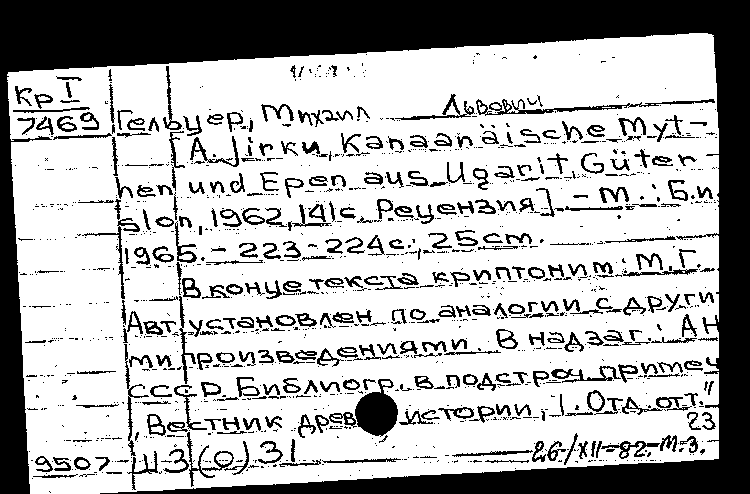 Кр I
7469 Гельцер, Михаил Львович
[A. Jirku, Kanaanäische Myt-
hen und Epen aus Ugarit, Güter-
slon, 1962, 141с. Рецензия]. – М.: Б.и.
1965. – 223-224с.; 25cm.
В конце текста криптоним: М.Г.
Авт. установлен по аналогии с други
ми произведениями. В надзаг.: АН
СССР. Библиогр. в подстроч. примеч
„Вестник древ истории, 1. Отд. отт."
23
9507 Ш3(0)31 26/XII-82. М.З.